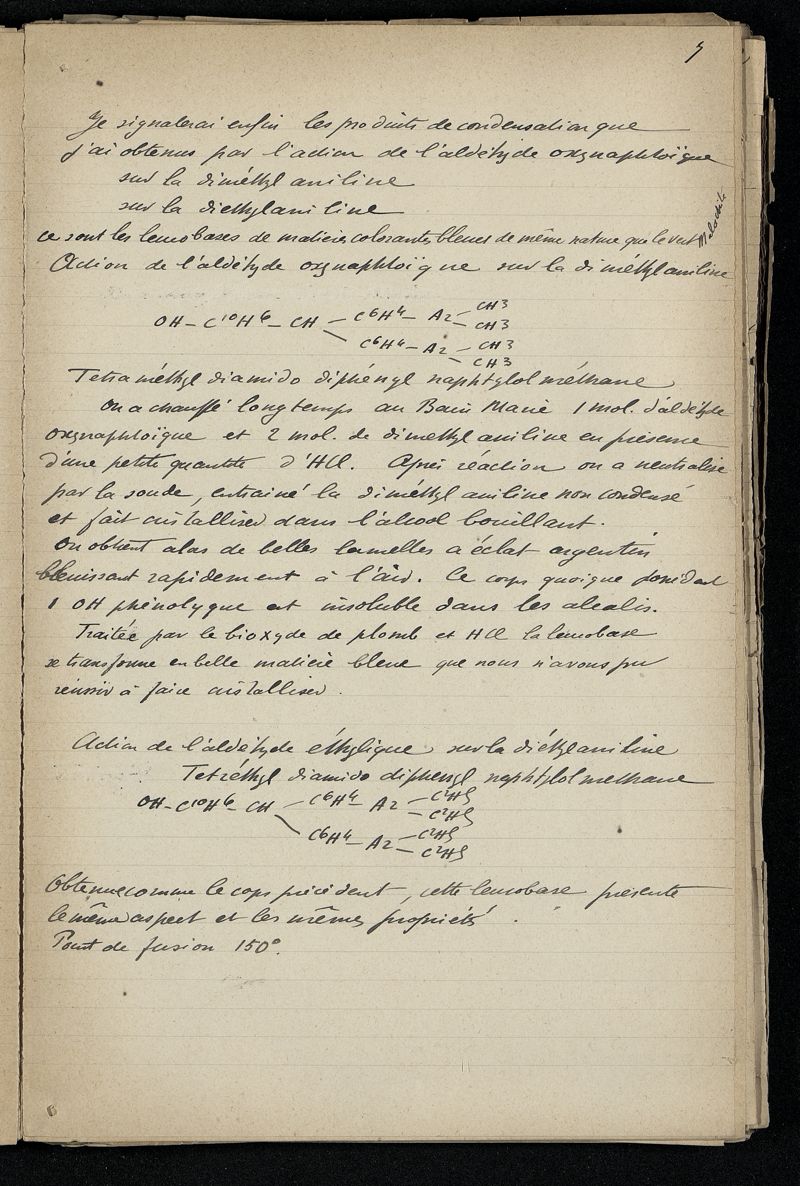 5
Je signalerai enfin les produits de condensation que
j'ai obtenus par l'action de l'aldéhyde oxynaphtoïque
sur la diméthylaniline
sur la diethylaniline
ce sont les leucobases de matières colorantes bleues de même nature que le vert Malachite
Action de l'aldéhyde oxynaphtoïque sur la diméthylaniline
OH – C10H6 – CH – C6H4 – Az – CH3
– CH3
C6H4 – Az – CH3
– CH3
Tetraméthyl diamido diphényl naphtylol méthane
On a chauffé longtemps au Bain Marie 1 mol. d'aldéhyde
oxynaphtoïque et 2 mol. de dimethylaniline en présence
d'une petite quantité d'HCl. Après réaction on a neutralisé
par la soude, entrainé la diméthylaniline non condensé
et fait cristalliser dans l'alcool bouillant.
On obtient alors de belles lamelles à éclat argentin
bleuissant rapidement à l'air. Ce corps quoique possédant
1 OH phénolyque est insoluble dans les alcalis.
Traitée par le bioxyde de plomb et HCl la leucobase
se transforme en belle matière bleue que nous n'avons pu
réussir à faire cristalliser.
Action de l'aldéhyde éthylique sur la diéthylaniline
Tetréthyl diamido diphenyl naphtylol methane
OH – C10H6 – CH – C6H4 – Az – C2H5
– C2H5
C6H4 – Az – C2H5
– C2H5
Obtenue comme le corps précédent, cette leucobase présente
le même aspect et les mêmes propriétés.
Point de fusion 150°.